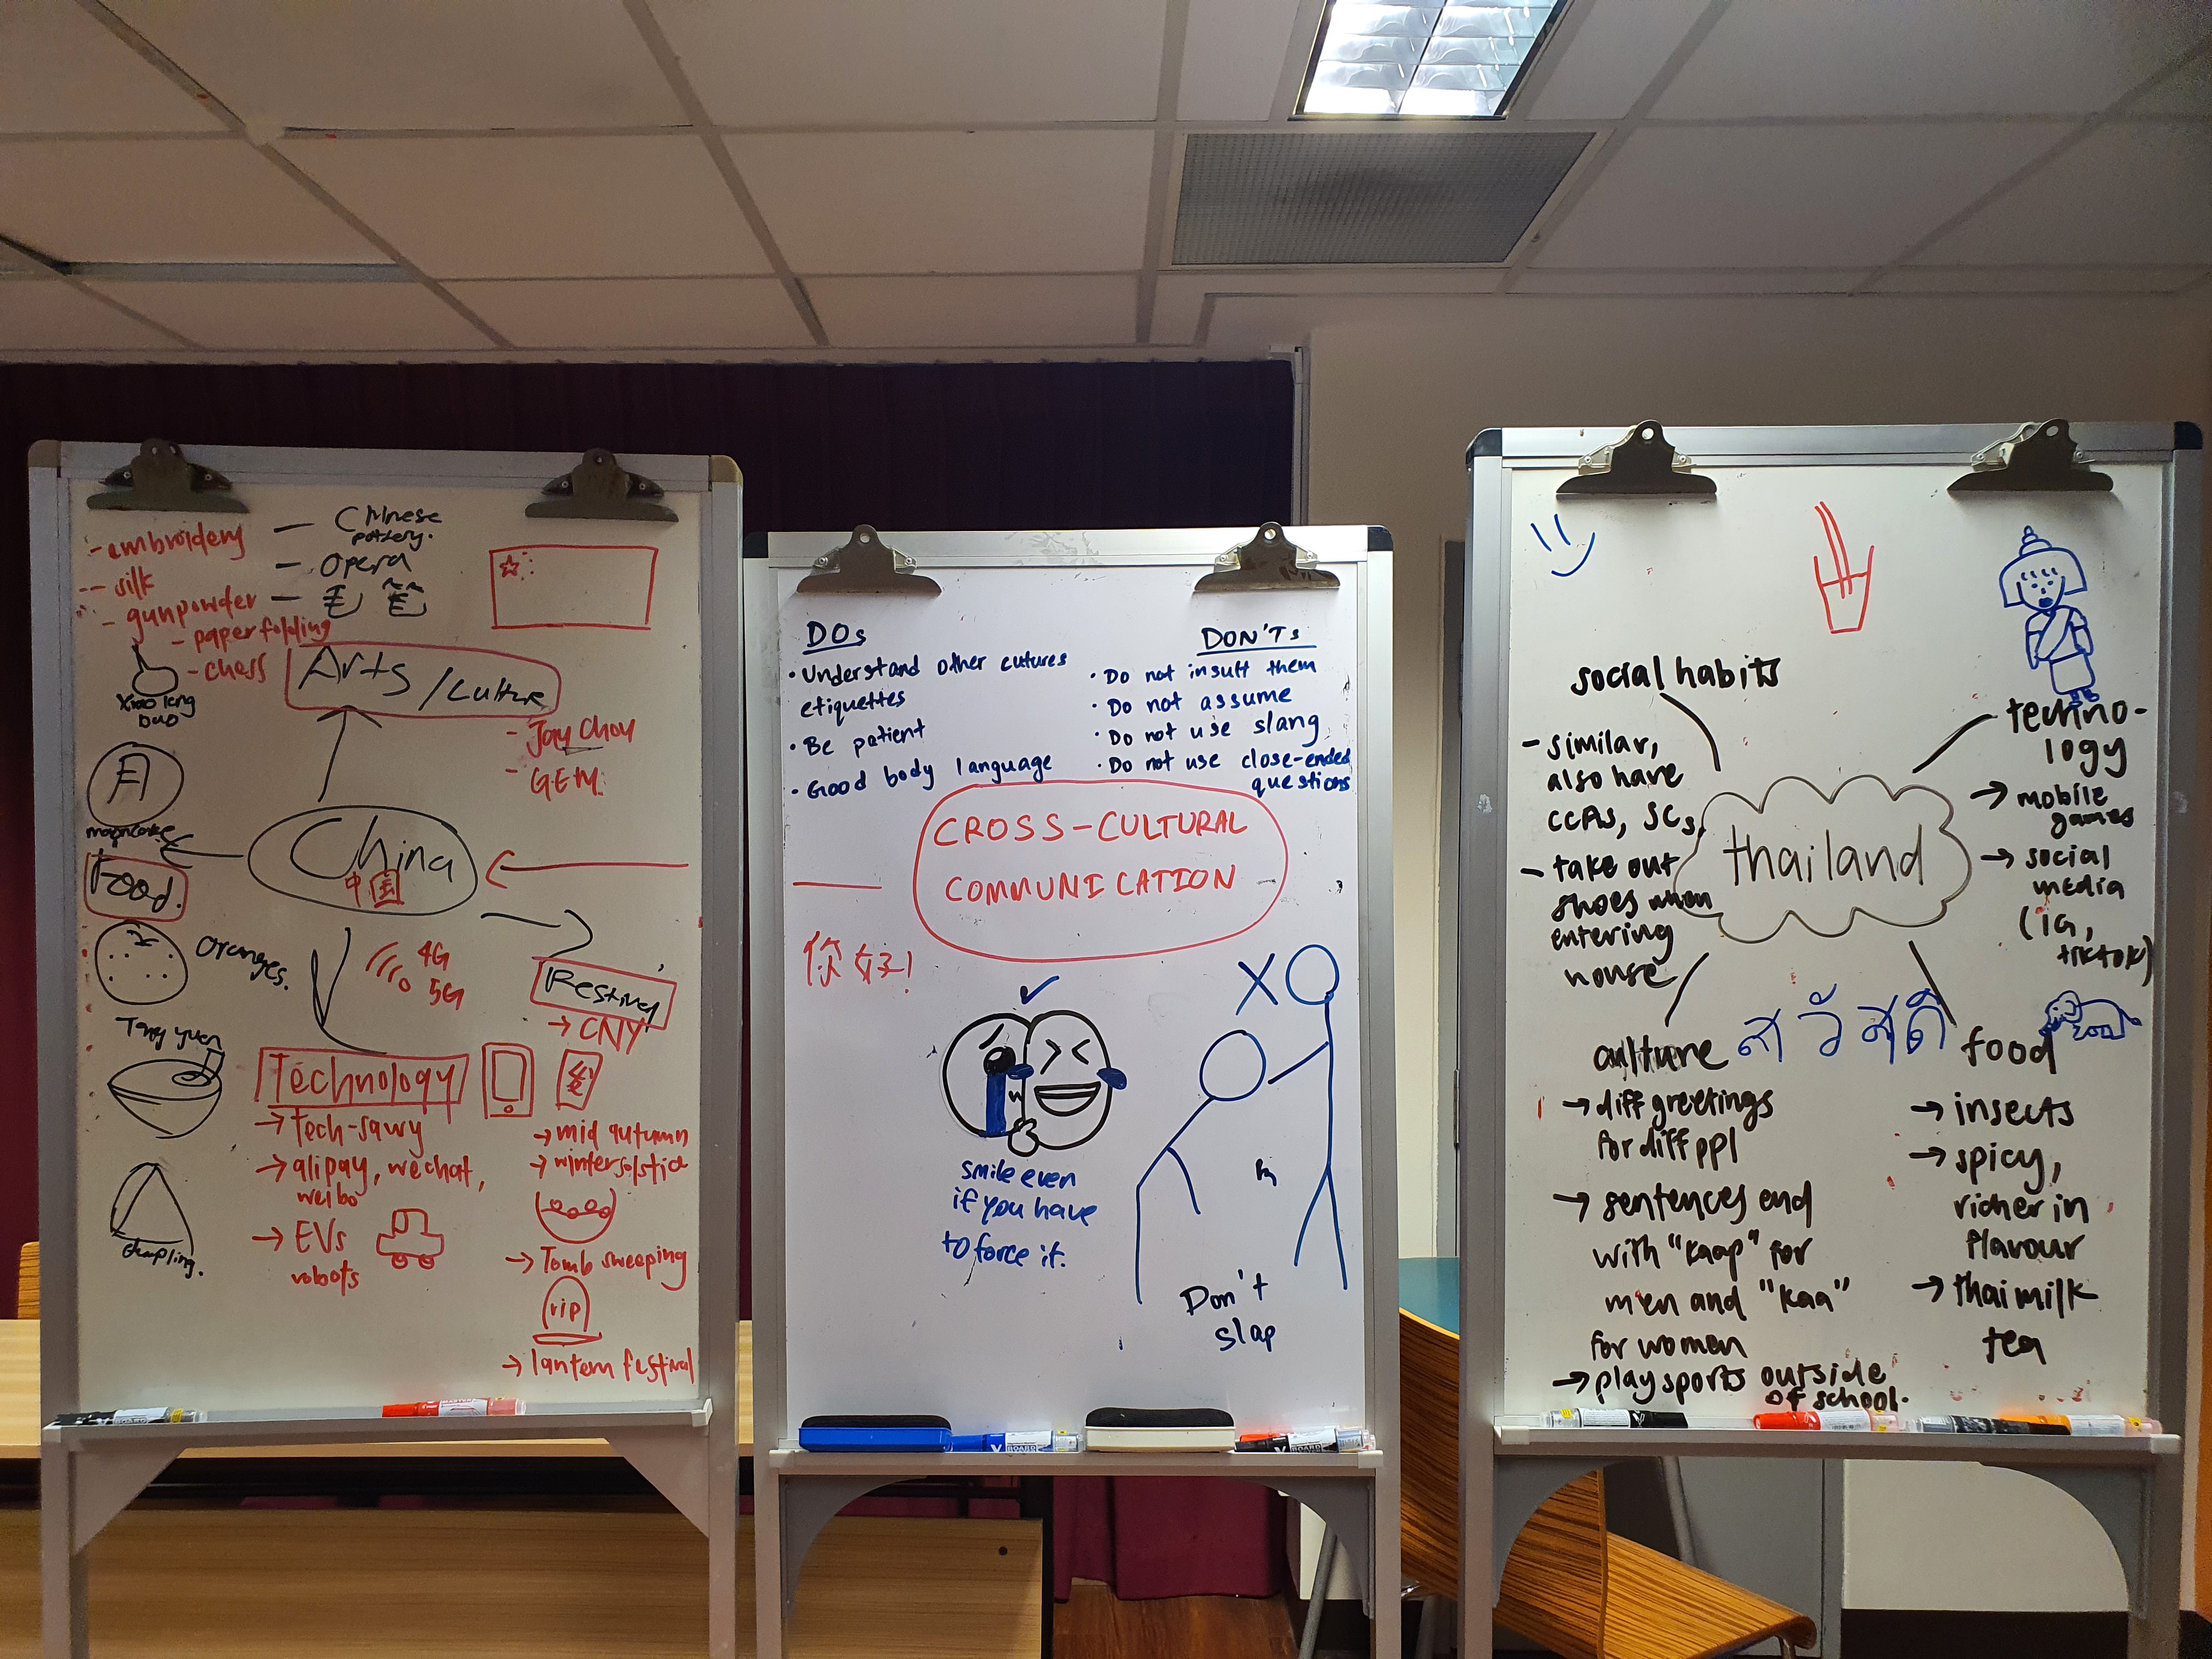 - embroidery
- silk
- gunpowder
- paper folding
- chess
- Chinese
pottery.
- Opera
Arts / Culture
- Jay Chou
- GEM
Xiao long
bao
月
mooncake
Food.
China
中国
Oranges.
4G
5G
Festival
→ CNY
Tang yuen
Technology
→ tech-savvy
→ alipay, wechat,
weibo
→ EVs
robots
→ mid autumn
→ winter solstice
→ Tomb sweeping
rip
→ lantern festival
dumpling.
DOs
• Understand other cutures
etiquettes
• Be patient
• Good body language
DON'Ts
• Do not insult them
• Do not assume
• Do not use slang
• Do not use close-ended
questions
CROSS-CULTURAL
COMMUNICATION
你好!
smile even
if you have
to force it.
Don't
slap
thailand
social habits
- similar,
also have
CCAs, SCs.
- take out
shoes when
entering
house
techno-
logy
→ mobile
games
→ social
media
(IG,
tiktok)
สวัสดี
culture
→ diff greetings
for diff ppl
→ sentences end
with "kaap" for
men and "kaa"
for women
→ play sports outside
of school.
food
→ insects
→ spicy,
richer in
flavour
→ thai milk
tea